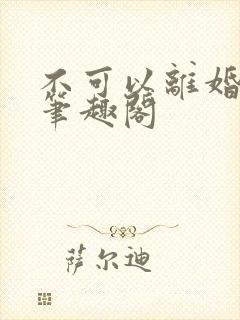 不可以離婚
筆趣閣
萨尔迪